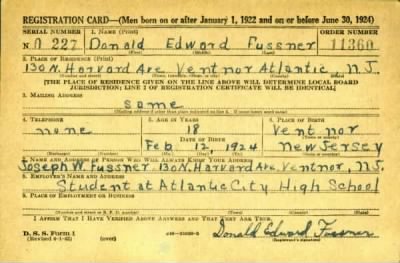 REGISTRATION CARD—(Men born on or after January 1, 1922 and on or before June 30, 1924)
SERIAL NUMBER 1. NAME (Print) ORDER NUMBER
N 227 Donald Edward Fussner 11360
2. PLACE OF RESIDENCE (Print)
130 N. Harvard Ave Ventnor Atlantic N.J.
[THE PLACE OF RESIDENCE GIVEN ON THE LINE ABOVE WILL DETERMINE LOCAL BOARD
JURISDICTION; LINE 2 OF REGISTRATION CERTIFICATE WILL BE IDENTICAL]
3. MAILING ADDRESS
same
4. TELEPHONE 5. AGE IN YEARS 6. PLACE OF BIRTH
none 18 Ventnor
DATE OF BIRTH
Feb 12, 1924 New Jersey
7. NAME AND ADDRESS OF PERSON WHO WILL ALWAYS KNOW YOUR ADDRESS
Joseph W. Fussner 130 N. Harvard Ave. Ventnor, N.J.
8. EMPLOYER'S NAME AND ADDRESS
Student at Atlantic City High School
9. PLACE OF EMPLOYMENT OR BUSINESS
I AFFIRM THAT I HAVE VERIFIED ABOVE ANSWERS AND THAT THEY ARE TRUE.
D. S. S. Form 1
(over)
Donald Edward Fussner
(Registrant's signature)